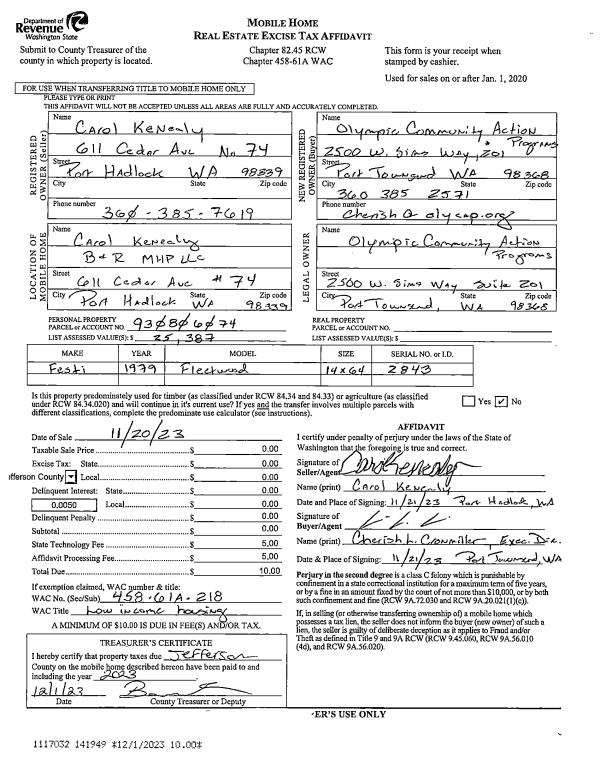 Department of
Revenue
Washington State
MOBILE HOME
REAL ESTATE EXCISE TAX AFFIDAVIT
Submit to County Treasurer of the
county in which property is located.
Chapter 82.45 RCW
Chapter 458-61A WAC
This form is your receipt when
stamped by cashier.
Used for sales on or after Jan. 1, 2020
FOR USE WHEN TRANSFERRING TITLE TO MOBILE HOME ONLY
PLEASE TYPE OR PRINT
THIS AFFIDAVIT WILL NOT BE ACCEPTED UNLESS ALL AREAS ARE FULLY AND ACCURATELY COMPLETED.
REGISTERED
OWNER (Seller)
Name
Carol Kenealy
611 Cedar Ave No 74
Street
Port Hadlock WA 98339
City State Zip code
Phone number
360-385-7619
NEW REGISTERED
OWNER (Buyer)
Name
Olympic Community Action
Programs
2500 W. Sims Way, 201
Street
Port Townsend WA 98368
City State Zip code
360 385 2571
Phone number
cherish@olycap.org
LOCATION OF
MOBILE HOME
Name
Carol Kenealy
B & R MHP LLC
Street
611 Cedar Ave # 74
City State Zip code
Port Hadlock WA 98339
LEGAL OWNER
Name
Olympic Community Action
Programs
Street
2500 W. Sims Way Suite 201
City State Zip code
Port Townsend, WA 98368
PERSONAL PROPERTY
PARCEL or ACCOUNT NO. 930806074
LIST ASSESSED VALUE(S): $ 25,387
REAL PROPERTY
PARCEL or ACCOUNT NO.
LIST ASSESSED VALUE(S): $
MAKE YEAR MODEL SIZE SERIAL NO. or I.D.
Festi 1979 Fleetwood 14x64 2843
Is this property predominately used for timber (as classified under RCW 84.34 and 84.33) or agriculture (as classified
under RCW 84.34.020) and will continue in it's current use? If yes and the transfer involves multiple parcels with
different classifications, complete the predominate use calculator (see instructions).
Yes ✓ No
Date of Sale 11/20/23
Taxable Sale Price $ 0.00
Excise Tax: State $ 0.00
Jefferson County Local $ 0.00
Delinquent Interest: State $ 0.00
0.0050 Local $ 0.00
Delinquent Penalty $ 0.00
Subtotal $ 0.00
State Technology Fee $ 5.00
Affidavit Processing Fee $ 5.00
Total Due $ 10.00
If exemption claimed, WAC number & title:
WAC No. (Sec/Sub) 458-61A-218
WAC Title Low income housing
A MINIMUM OF $10.00 IS DUE IN FEE(S) AND/OR TAX.
TREASURER'S CERTIFICATE
I hereby certify that property taxes due Jefferson
County on the mobile home described hereon have been paid to and
including the year 2023
12/1/23
Date County Treasurer or Deputy
AFFIDAVIT
I certify under penalty of perjury under the laws of the State of
Washington that the foregoing is true and correct.
Signature of
Seller/Agent Carol Kenealy
Name (print) Carol Kenealy
Date and Place of Signing: 11/21/23 Port Hadlock, WA
Signature of
Buyer/Agent
Name (print) Cherish L. Cronmiller, Exec. Dir.
Date & Place of Signing: 11/21/23 Port Townsend, WA
Perjury in the second degree is a class C felony which is punishable by
confinement in a state correctional institution for a maximum term of five years,
or by a fine in an amount fixed by the court of not more than $10,000, or by both
such confinement and fine (RCW 9A.72.030 and RCW 9A.20.021(1)(c)).
If, in selling (or otherwise transferring ownership of) a mobile home which
possesses a tax lien, the seller does not inform the buyer (new owner) of such a
lien, the seller is guilty of deliberate deception as it applies to Fraud and/or
Theft as defined in Title 9 and 9A RCW (RCW 9.45.060, RCW 9A.56.010
(4d), and RCW 9A.56.020).
ER'S USE ONLY
1117032 141949 *12/1/2023 10.00*